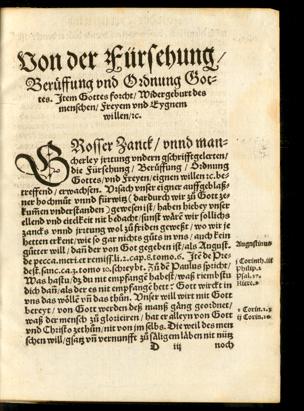 Von der Fürsehung/
Berüffung vnd Ordnung Got-
tes. Item Gottes forcht/ Widergeburt des
menschen/ Freyem vnd Eygnem
willen/ıc.
GRosser Zanck/ vnnd man-
cherley jrrtung vndern gschrifftgelerten/
die Fürsehung/ Berüffung/ Ordnung
Gottes/vnd Freyen/eignen willen ıc. be-
treffend/ erwachsen. Vrsach vnser eigner auffgeblaß-
ner hochmüt vnnd fürwitz/ dardurch wir zů Gott ze-
kummen vnderstanden) gewesen ist/ haben hiebey vnser
ellend vnd eitelkeit nit bedacht/ sunst wäre wir sollichs
zancks vnnd jrrtung wol zů friden gewest/ wo wir je
hetten erkent/ wie so gar nichts gůts in vns/ auch kein
gůtter will/ dañ der von Got gegeben ist/ als August.
de pecca. meri. et remiss. li. 2. cap. 8. tomo. 6. Ite de Pre-
dest. sanc. ca. 3. tomo 10. schreybt. Zů dē Paulus spricht/
Was hastu/ dz du nit empfangē habest/ waß riembstu
dich dañ/ als der es nit empfangē hett: Gott wirckt in
vns das wöllē vñ das thůn. Vnser will wirt mit Gott
bereyt/ von Gott werden deß manß gäng geordnet/
waß der mensch zů glorieren/ hat er alleyn von Gott
vnd Christo zethůn/ nit von jm selbs. Die weil des men
schen will/ gsatz vñ vernunfft/ zů säligem läben nit nütz
D iij noch
Augustinus
1 Corinth. iiij
Philip. 2
Psal. 37.
1 Corin. 1. 3
ij Corin. 10.